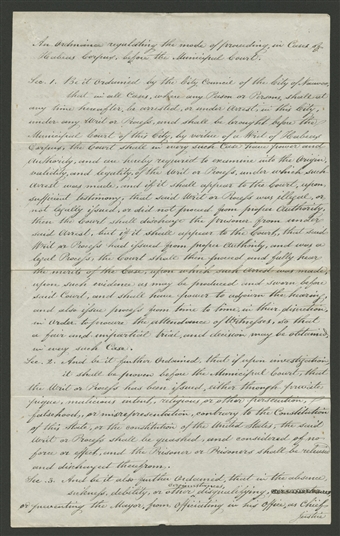 An Ordinance regulating the mode of proceeding, in Cases of
Habeas Corpus, before the Municipal Court.
Sec. 1. Be it Ordained, by the City Council of the City of Nauvoo,
that in all Cases, where any Person or Persons, shall at
any time hereafter, be arrested, or under Arrest, in this City,
under any Writ or Process, and shall be brought before the
Municipal Court of this City, by virtue of a Writ of Habeas
Corpus, the Court shall in every such Case have power and
Authority, and are hereby required to examine into the Origin,
validity, and legality, of the Writ or Process, under which such
Arrest was made, and if it shall appear to the Court, upon
sufficient testimony, that said Writ or Process was illegal, or
not legally issued, or did not proceed from proper Authority,
then the Court shall discharge the Prisoner from under
said Arrest, but if it shall appear to the Court, that said
Writ or Process had issued from proper Authority, and was a
legal Process, the Court shall then proceed and fully hear
the merits of the Case, upon which such Arrest was made,
upon such evidence as may be produced and sworn before
said Court, and shall have power to adjourn the hearing,
and also issue process from time to time, in their discretion,
in Order to procure the attendance of Witnesses, so that
a fair and impartial trial, and decision, may be obtained,
in every such Case.
Sec. 2. And be it further Ordained, that if upon investigation
it shall be proven before the Municipal Court, that
the Writ or Process has been issued, either through private
pique, malicious intent, religious or other persecution,
falsehood, or misrepresentation, contrary to the Constitution
of this State, or the constitution of the United States, the said
Writ or Process shall be quashed, and considered of no
force or effect, and the Prisoner or Prisoners shall be released
and discharged therefrom.
Sec. 3. And be it also further Ordained, that in the absence,
sickness, debility, or other circumstances disqualifying
or preventing the Mayor, from officiating in his office, as Chief
Justice